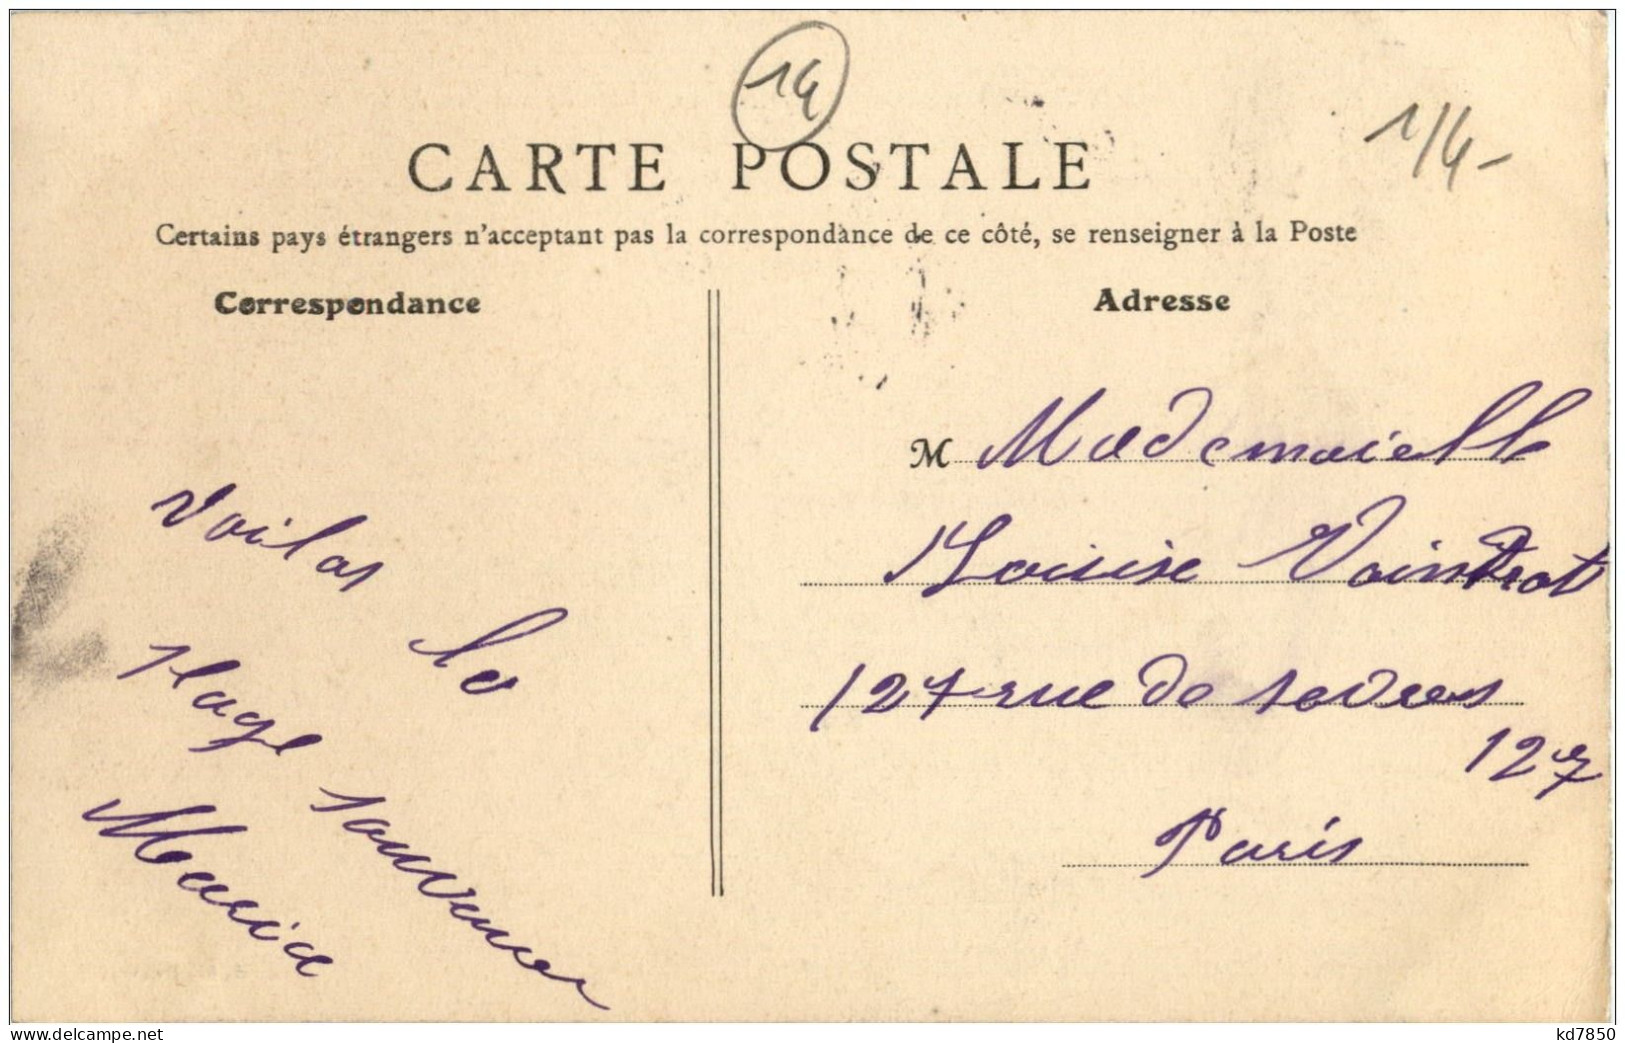 14
1/4-
CARTE POSTALE
Certains pays étrangers n'acceptant pas la correspondance de ce côté, se renseigner à la Poste
Correspondance
Adresse
Voilas la
plage
Maria
M Mademoiselle
Louise
127 rue de Sevres
127
Paris
www.delcampe.net
kd7850